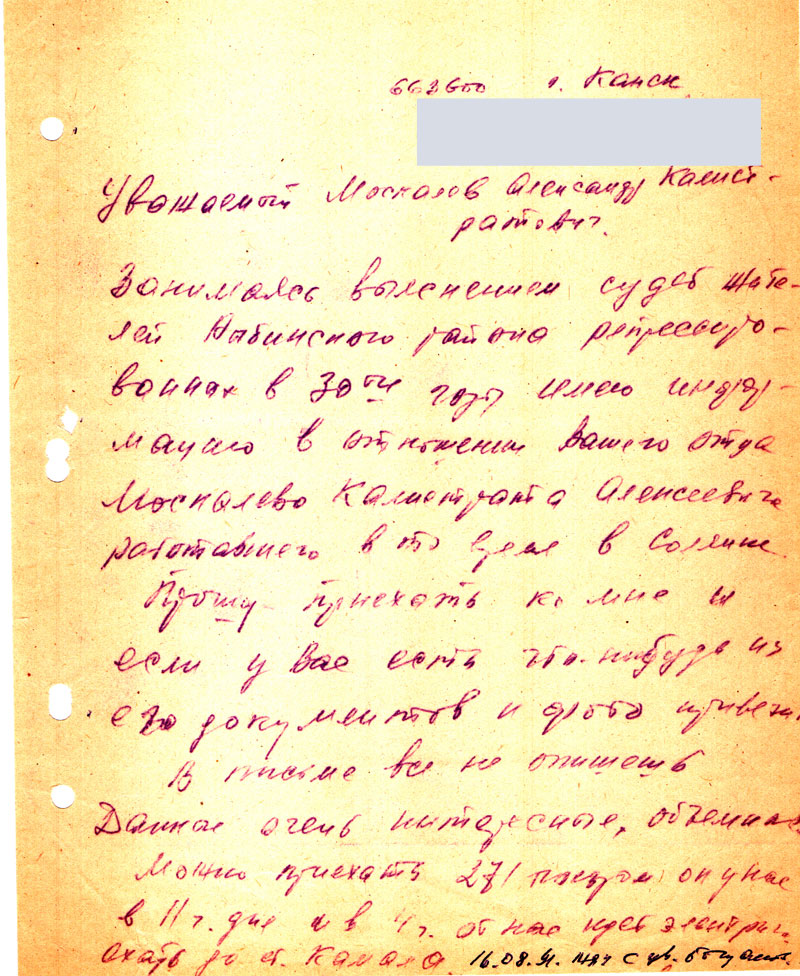 663600 г. Канск
Уважаемый Москалев Александр Калист-
ратович.
Занимаясь выяснением судеб жите-
лей Рыбинского района репрессиро-
ванных в 30тых году имею инфор-
мацию в отношении Вашего отца
Москалева Калистрата Алексеевича
работавшего в то время в Солянке.
Прошу приехать ко мне и
если у Вас есть что-нибудь из
его документов и фото привези
В письме все не опишешь
Данные очень интересные, объемные
Можно приехать 271 поездом он у нас
в 11 ч. дня и в 4 ч. от нас идет электри-
ехать до ст. Камала. 16.08.91. с ув.